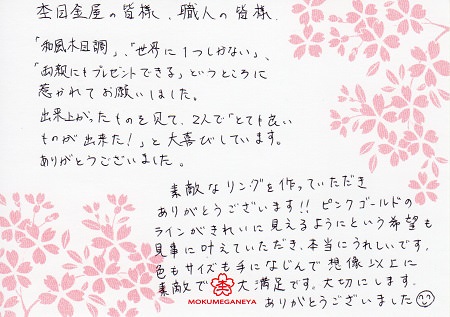 杢目金屋の皆様、職人の皆様
「和風木目調」、「世界に1つしかない」、
「両親にもプレゼントできる」というところに
惹かれてお願いしました。
出来上がったものを見て、2人で「とても良い
ものが出来た!」と大喜びしています。
ありがとうございました。
素敵なリングを作っていただき
ありがとうございます!! ピンクゴールドの
ラインがきれいに見えるようにという希望も
見事に叶えていただき、本当にうれしいです。
色もサイズも手になじんで想像以上に
素敵で大満足です。大切にします。
ありがとうございました
MOKUMEGANEYA